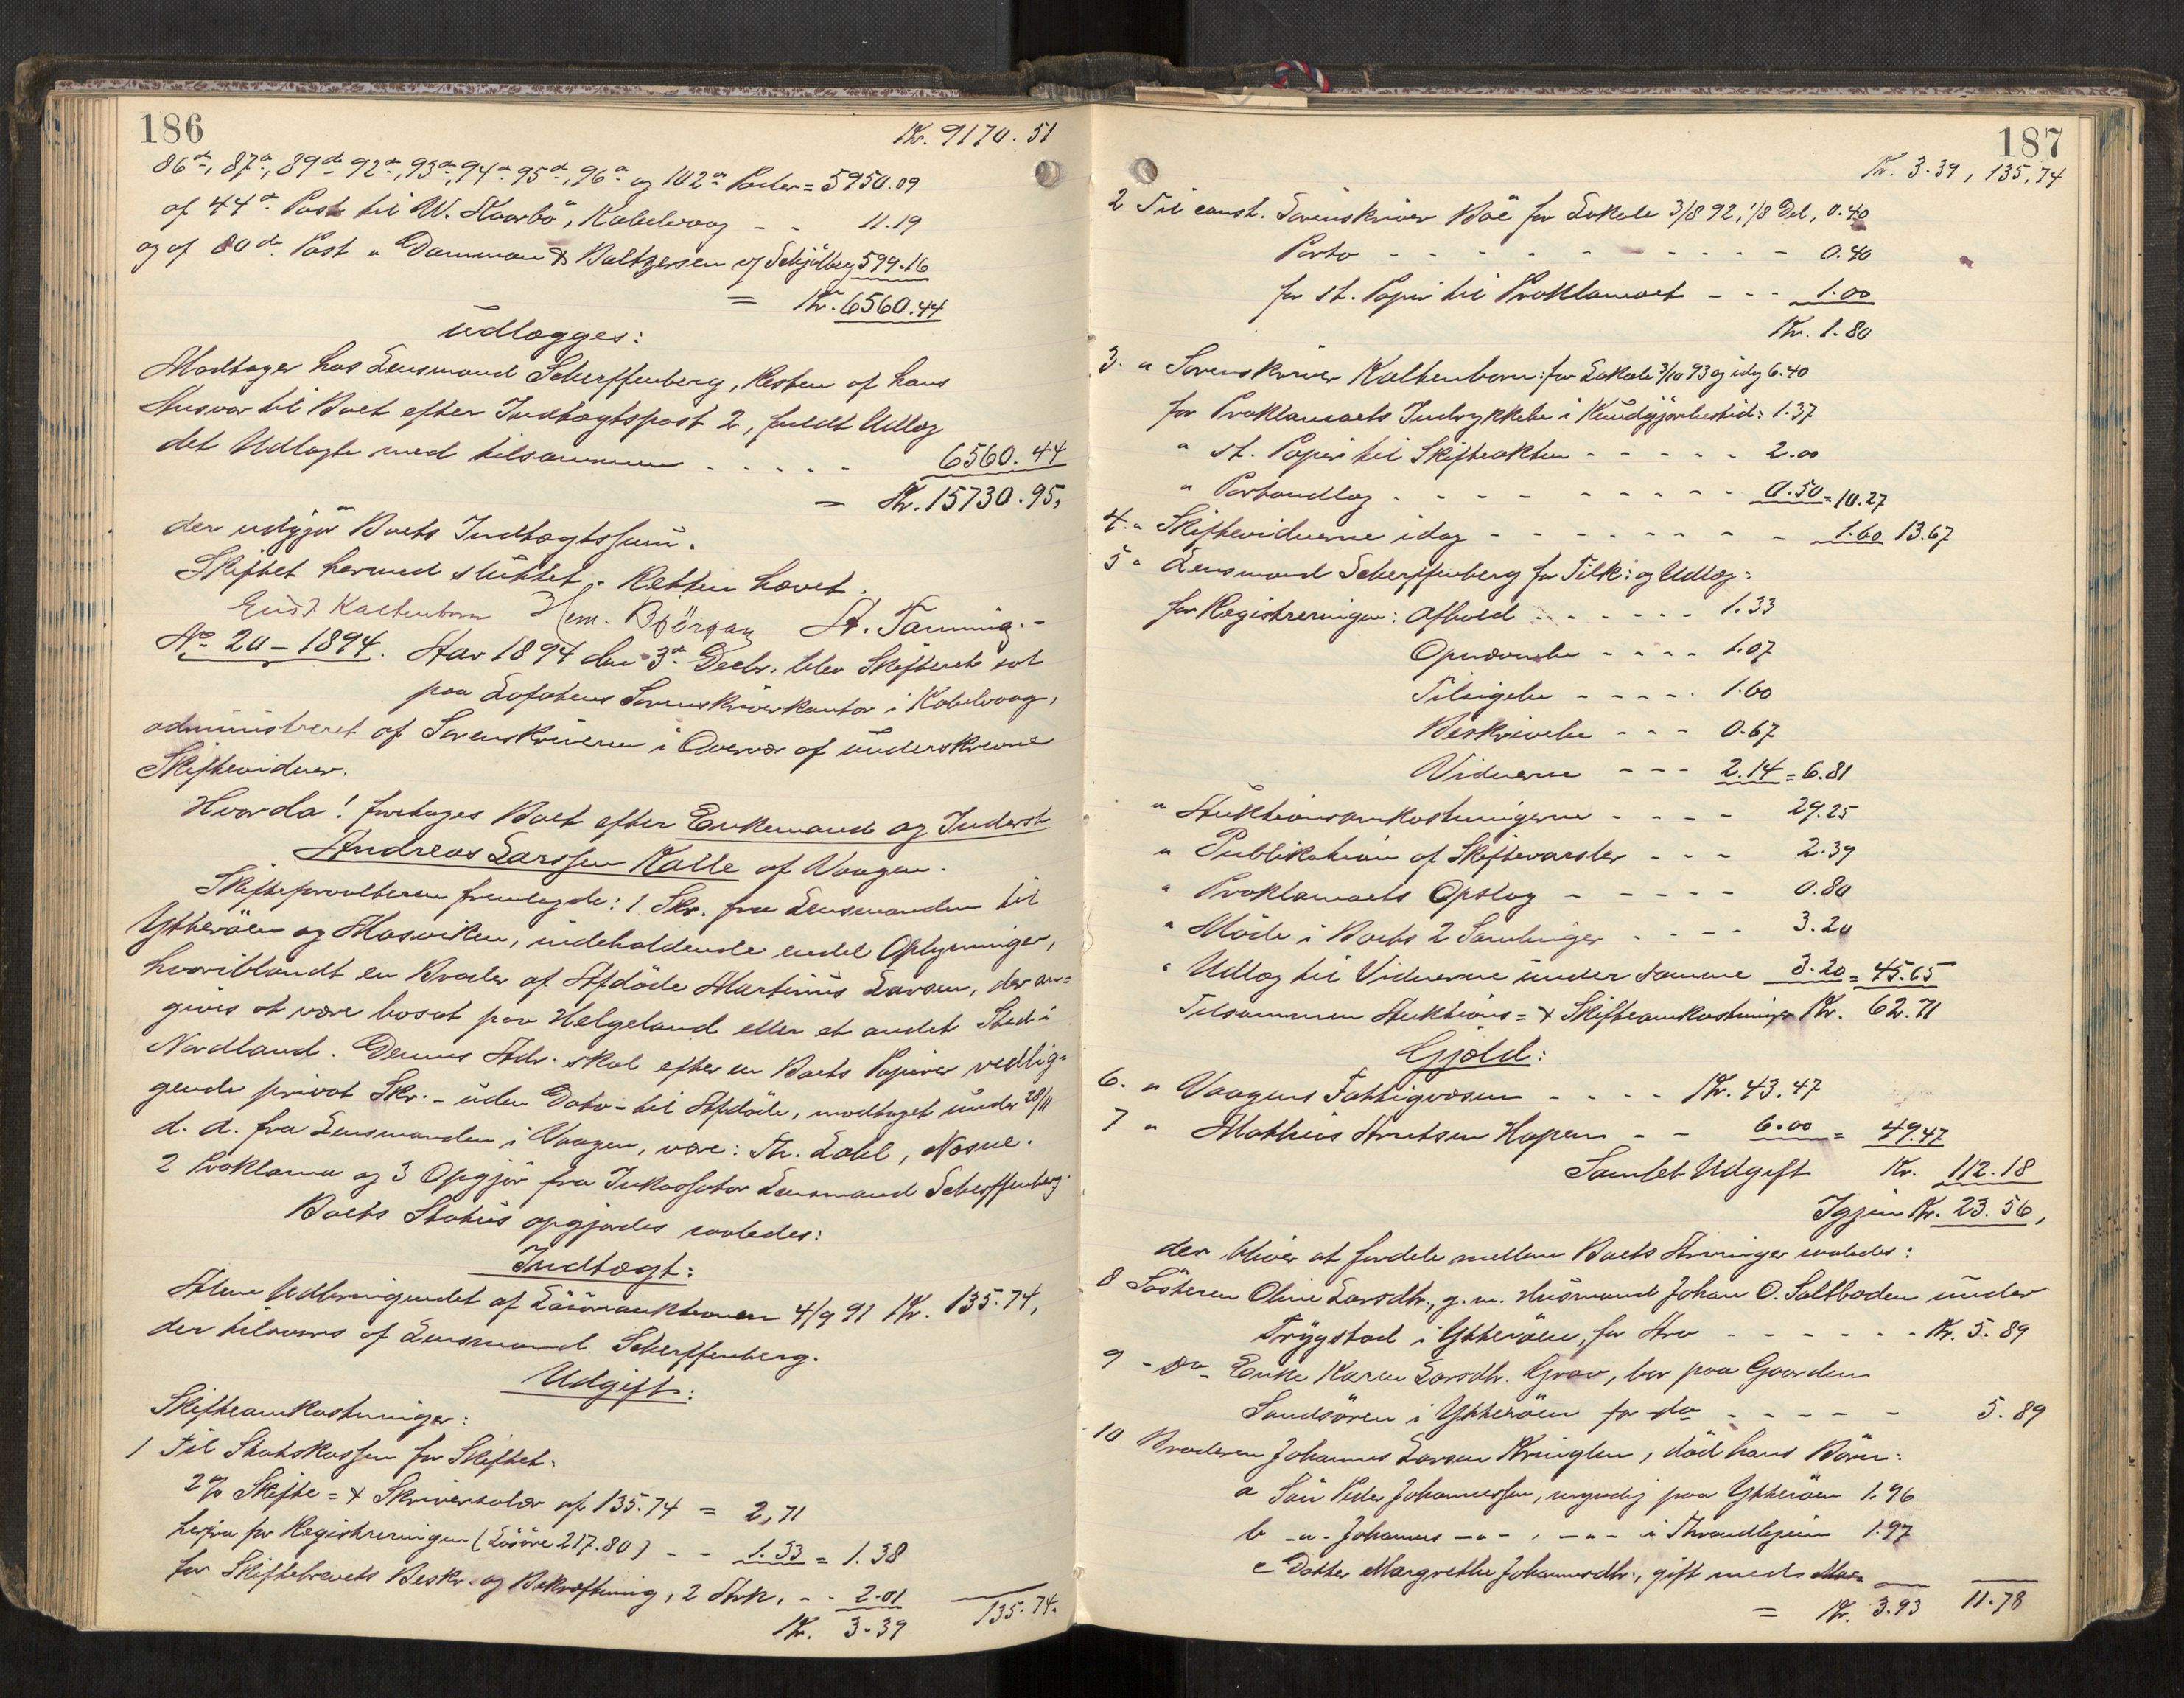 186
Kr. 9170.51
86de, 87de, 89de 92de, 93de, 94de 95de, 96de og 102den Poster = 5950.09
af 44de Post til W. Kaarbö, Kabelvaag - - 11.19
og af 80de Post " Damman & Baltzersen v/ Schjölberg 599.16
= Kr. 6560.44
udlægges:
Modtager hos Lensmand Scherffenberg, Resten af hans
Ansvar til Boet efter Indtægtspost 2, fuldt Udlæg
det Udlagte med tilsammen - - - - - 6560.44
= Kr. 15730.95,
der udgjör Boets Indtægtssum.
Skiftet hermed sluttet. Retten hævet.
Eust. Kaltenborn Hem. Björgan A. Tanning.-
No 20 - 1894. Aar 1894 den 3de Decbr. blev Skifteret sat
paa Lofotens Sorenskriverkontor i Kabelvaag,
administreret af Sorenskriveren i Overvær af underskrevne
Skiftevidner.
Hvorda! foretoges Boet efter Enkemand og Inderst
Andreas Larssen Kalle af Vaagen.
Skifteforvalteren fremlagde: 1 Skr. fra Lensmanden til
Ytteröen og Mosviken, indeholdende endel Oplysninger,
hvoriblandt en Broder af Afdöde Martinus Larsen, der an=
gives at være bosat paa Helgeland eller et andet Sted i
Nordland. Dennes Adr. skal efter en Boets Papirer vedlig=
gende privat Skr. - uden Dato - til Afdöde, modtaget under 28/11
d. A. fra Lensmanden i Vaagen, være: Th. Dahl, Næsne.
2 Proklama og 3 Opgjör fra Inkassator Lensmand Scherffenberg.
Boets Status opgjordes saaledes:
Indtægt:
Alene Udbringendet af Lösöreauktionen 4/9 91 Kr. 135.74,
der tilsvares af Lensmand Scherffenberg.
Udgift:
Skifteomkostninger:
1 Til Statskassen for Skiftet:
2% Skifte= & Skriversalær af 135.74 = 2,71
herfra for Registreringen (Lösöre 217.80) - - 1.33 = 1.38
for Skiftebrevets Beskr. og Bekræftning, 2 Ark, - - 2.01
Kr. 3.39 135.74.
187
Kr. 3.39, 135.74
2 Til const. Sorenskriver Böe for Lokale 3/8 92, 1/8 Del, 0.40
Porto - - - - - - - - - - 0.40
for st. Papir til Proklamaet - - - 1.00
Kr. 1.80
3. " Sorenskriver Kaltenborn: for Lokale 3/10 93 og idag 6.40
for Proklamaets Indrykkelse i Kundgjörelsestid: 1.37
" st. Papir til Skifteakten - - - - - 2.00
" Portoudlæg - - - - - - - - - 0.50 = 10.27
4. " Skiftevidnerne idag - - - - - - - - 1.60 13.67
5 " Lensmand Scherffenberg for Tilk: og Udlæg:
for Registreringen: Afhold - - - - - - 1.33
Opnævnelse - - - - 1.07
Tilsigelse - - - - - 1.60
Beskrivelse - - - 0.67
Vidnerne - - - 2.14 = 6.81
" Auktionsomkostningerne - - - - 29.25
" Publikation af Skiftevarsler - - - 2.39
" Proklamaets Opslag - - - - - 0.80
" Möde i Boets 2 Samlinger - - - - 3.20
" Udlæg til Vidnerne under samme 3.20 = 45.65
Tilsammen Auktions= & Skifteomkostninger Kr. 62.71
Gjæld:
6. " Vaagens Fattigvæsen - - - - Kr. 43.47
7 " Mathias Arntsen Hopen - - 6.00 = 49.47
Samlet Udgift Kr. 112.18
Igjen Kr. 23.56,
der bliver at fordele mellem Boets Arvinger saaledes:
8 Sösteren Oline Larsdtr., g. m. Husmand Johan O. Saltboden under
Trÿgstad i Ytteröen, for Arv - - - - - - Kr. 5.89
9 - Do - Enke Karen Larsdtr. Grav, bor paa Gaarden
Sandsören i Ytteröen for do - - - - - 5.89
10 Broderen Johannes Larsen Kringlen, död hans Börn:
a Sön Peder Johannessen, myndig paa Ytteröen 1.96
b -"- Johannes -"- , -"- i Throndhjem 1.97
c Datter Margrethe Johannesdtr., gift med Mar=
= Kr. 3.93 11.78